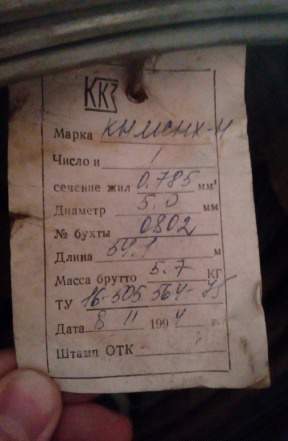 ККЗ
Марка КНМСНХ-Н
Число и 1
сечение жил 0.785 мм²
Диаметр 5.0 мм
№ бухты 0802
Длина 54.1 м
Масса брутто 5.7 кг
ТУ 16-505 564-75
Дата 8 11 1994 г.
Штамп ОТК